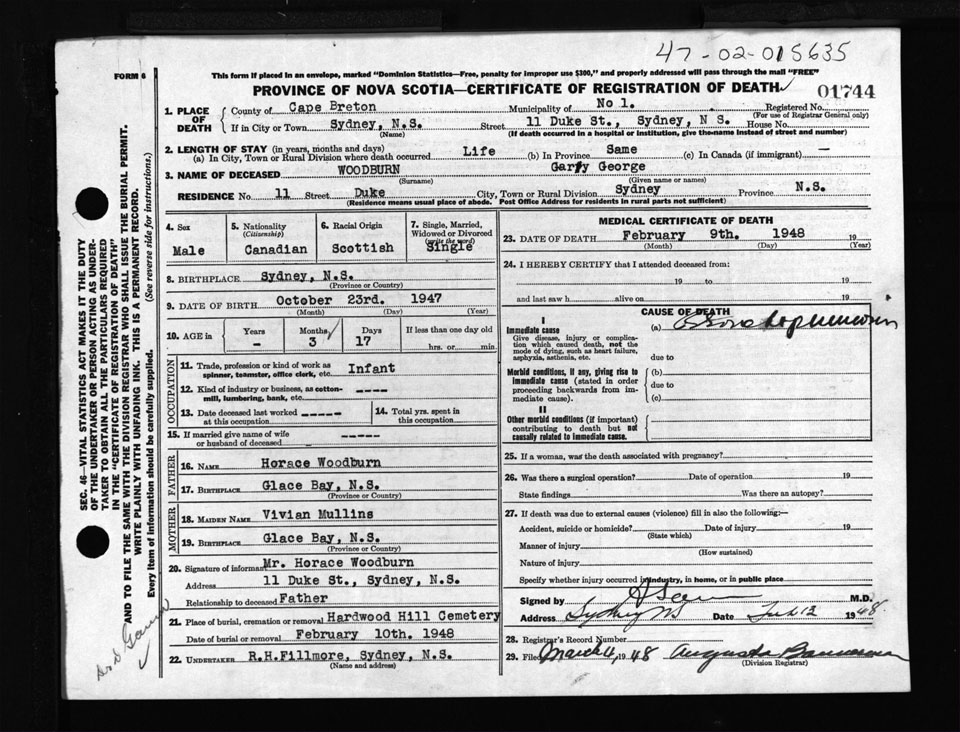 47-02-015635
FORM 6
This form if placed in an envelope, marked "Dominion Statistics—Free, penalty for improper use $300," and properly addressed will pass through the mail "FREE"
PROVINCE OF NOVA SCOTIA—CERTIFICATE OF REGISTRATION OF DEATH
01744
1. PLACE OF DEATH
County of Cape Breton Municipality of No 1. Registered No.
(For use of Registrar General only)
If in City or Town Sydney, N.S. Street 11 Duke St., Sydney, N S. House No
(Name) (If death occurred in a hospital or institution, give the name instead of street and number)
2. LENGTH OF STAY (in years, months and days)
(a) In City, Town or Rural Division where death occurred Life (b) In Province Same (c) In Canada (if immigrant) —
3. NAME OF DECEASED WOODBURN Garry George
(Surname) (Given name or names)
RESIDENCE No 11 Street Duke City, Town or Rural Division Sydney Province N.S.
(Residence means usual place of abode. Post Office Address for residents in rural parts not sufficient)
4. Sex
Male
5. Nationality
(Citizenship)
Canadian
6. Racial Origin
Scottish
7. Single, Married, Widowed or Divorced
(write the word)
Single
8. BIRTHPLACE Sydney, N.S.
(Province or Country)
9. DATE OF BIRTH October 23rd. 1947
(Month) (Day) (Year)
10. AGE in
Years Months Days If less than one day old
- 3 17 hrs. or min.
OCCUPATION
11. Trade, profession or kind of work as Infant
spinner, teamster, office clerk, etc.
12. Kind of industry or business, as cotton- ----
mill, lumbering, bank, etc.
13. Date deceased last worked -----
at this occupation
14. Total yrs. spent in
this occupation
15. If married give name of wife -----
or husband of deceased
FATHER
16. NAME Horace Woodburn
17. BIRTHPLACE Glace Bay, N.S.
(Province or Country)
MOTHER
18. MAIDEN NAME Vivian Mullins
19. BIRTHPLACE Glace Bay, N.S.
(Province or Country)
20. Signature of informant Mr. Horace Woodburn
Address 11 Duke St., Sydney, N.S.
Relationship to deceased Father
21. Place of burial, cremation or removal Hardwood Hill Cemetery
Date of burial or removal February 10th. 1948
22. UNDERTAKER R.H.Fillmore, Sydney, N.S.
(Name and address)
MEDICAL CERTIFICATE OF DEATH
23. DATE OF DEATH February 9th. 1948 19
(Month) (Day) (Year)
24. I HEREBY CERTIFY that I attended deceased from:
19 to 19
and last saw h alive on 19
CAUSE OF DEATH
I
Immediate cause (a)
Give disease, injury or complica-
tion which caused death, not the
mode of dying, such as heart failure,
asphyxia, asthenia, etc. due to
Morbid conditions, if any, giving rise to (b)
immediate cause (stated in order due to
proceeding backwards from im-
mediate cause). (c)
II
Other morbid conditions (if important)
contributing to death but not
causally related to immediate cause.
25. If a woman, was the death associated with pregnancy?
26. Was there a surgical operation? Date of operation 19
State findings Was there an autopsy?
27. If death was due to external causes (violence) fill in also the following:—
Accident, suicide or homicide? Date of injury 19
(State which)
Manner of injury
(How sustained)
Nature of injury
Specify whether injury occurred in industry, in home, or in public place
Signed by M.D.
Address Sydney NS Date Feb 12 1948
28. Registrar's Record Number
29. Filed March 4, 1948 Augusta
(Division Registrar)
SEC. 46—VITAL STATISTICS ACT MAKES IT THE DUTY
OF THE UNDERTAKER OR PERSON ACTING AS UNDER-
TAKER TO OBTAIN ALL THE PARTICULARS REQUIRED
IN THE "CERTIFICATE OF REGISTRATION OF DEATH"
AND TO FILE THE SAME WITH THE DIVISION REGISTRAR WHO SHALL ISSUE THE BURIAL PERMIT.
WRITE PLAINLY WITH UNFADING INK. THIS IS A PERMANENT RECORD.
Every item of information should be carefully supplied. (See reverse side for instructions.)